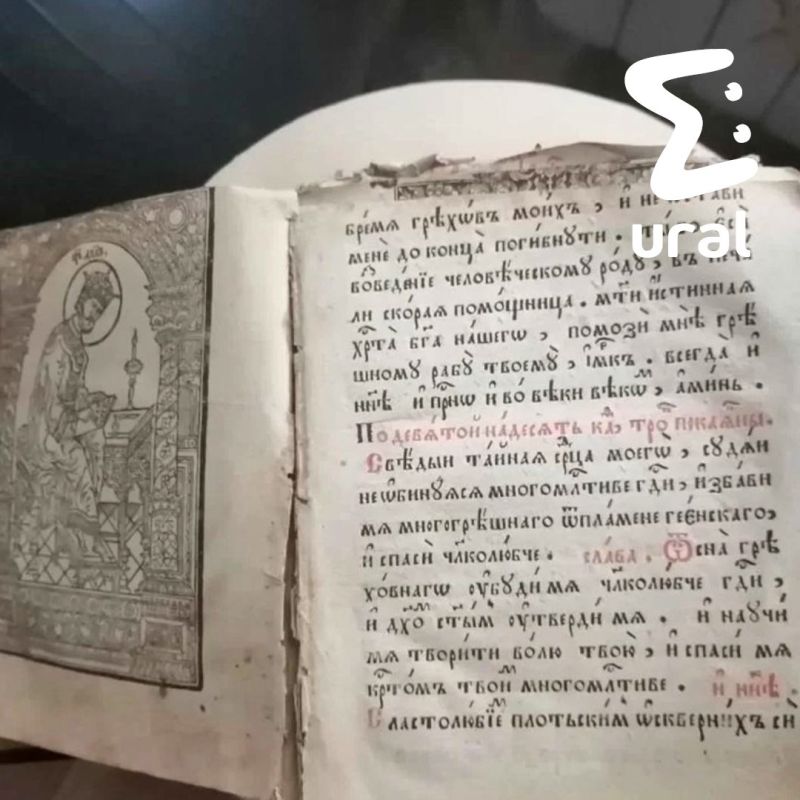 ural
бре́мѧ грѣхѡ́въ мои́хъ , и҆ не ѡ҆ста́ви
менѐ до конца̀ поги́бнути .
во́веде́нїе человѣ́ческому ро́дꙋ ,
ли ско́раѧ помо́щница . мт҃и и҆́стиннаѧ
хр҃та̀ бг҃а на́шегѡ , помозѝ мнѣ̀ грѣ̀
шному рабꙋ̀ твоемꙋ̀ , и҆́м҃ркъ . всегда̀ и҆
нн҃ѣ и҆ при́нѡ и҆ во́ вѣки вѣ́кѡм , а҆ми́нь .
По девѧ́той на́десѧть ка , тро покаѧ́ны .
Свѣ́дыи та́йнаѧ ср҃ца моегѡ̀ , сꙋдѧ́и
неѡби́нꙋѧсѧ многомл҃тиве гд҃и , и҆зба́ви
мѧ многогрѣ́шнаго ѿ пла́мене гео́нскаго ,
и҆ спасѝ чл҃колю́бче . сла́ва . Ѿ сна̀ грѣ
хо́внагѡ оу҆бꙋди́ мѧ чл҃колю́бче гд҃и ,
и҆ дх҃ѡм ст҃ым оу҆тверди́ мѧ . и҆ наꙋчи́
мѧ твори́ти во́лю твою̀ , и҆ спаси́ мѧ
кр҃то́мъ твои многомл҃тиве . и҆ нн҃ѣ .
Сластолю́бїе пло́тьским ѡ҆скверни́хъ си